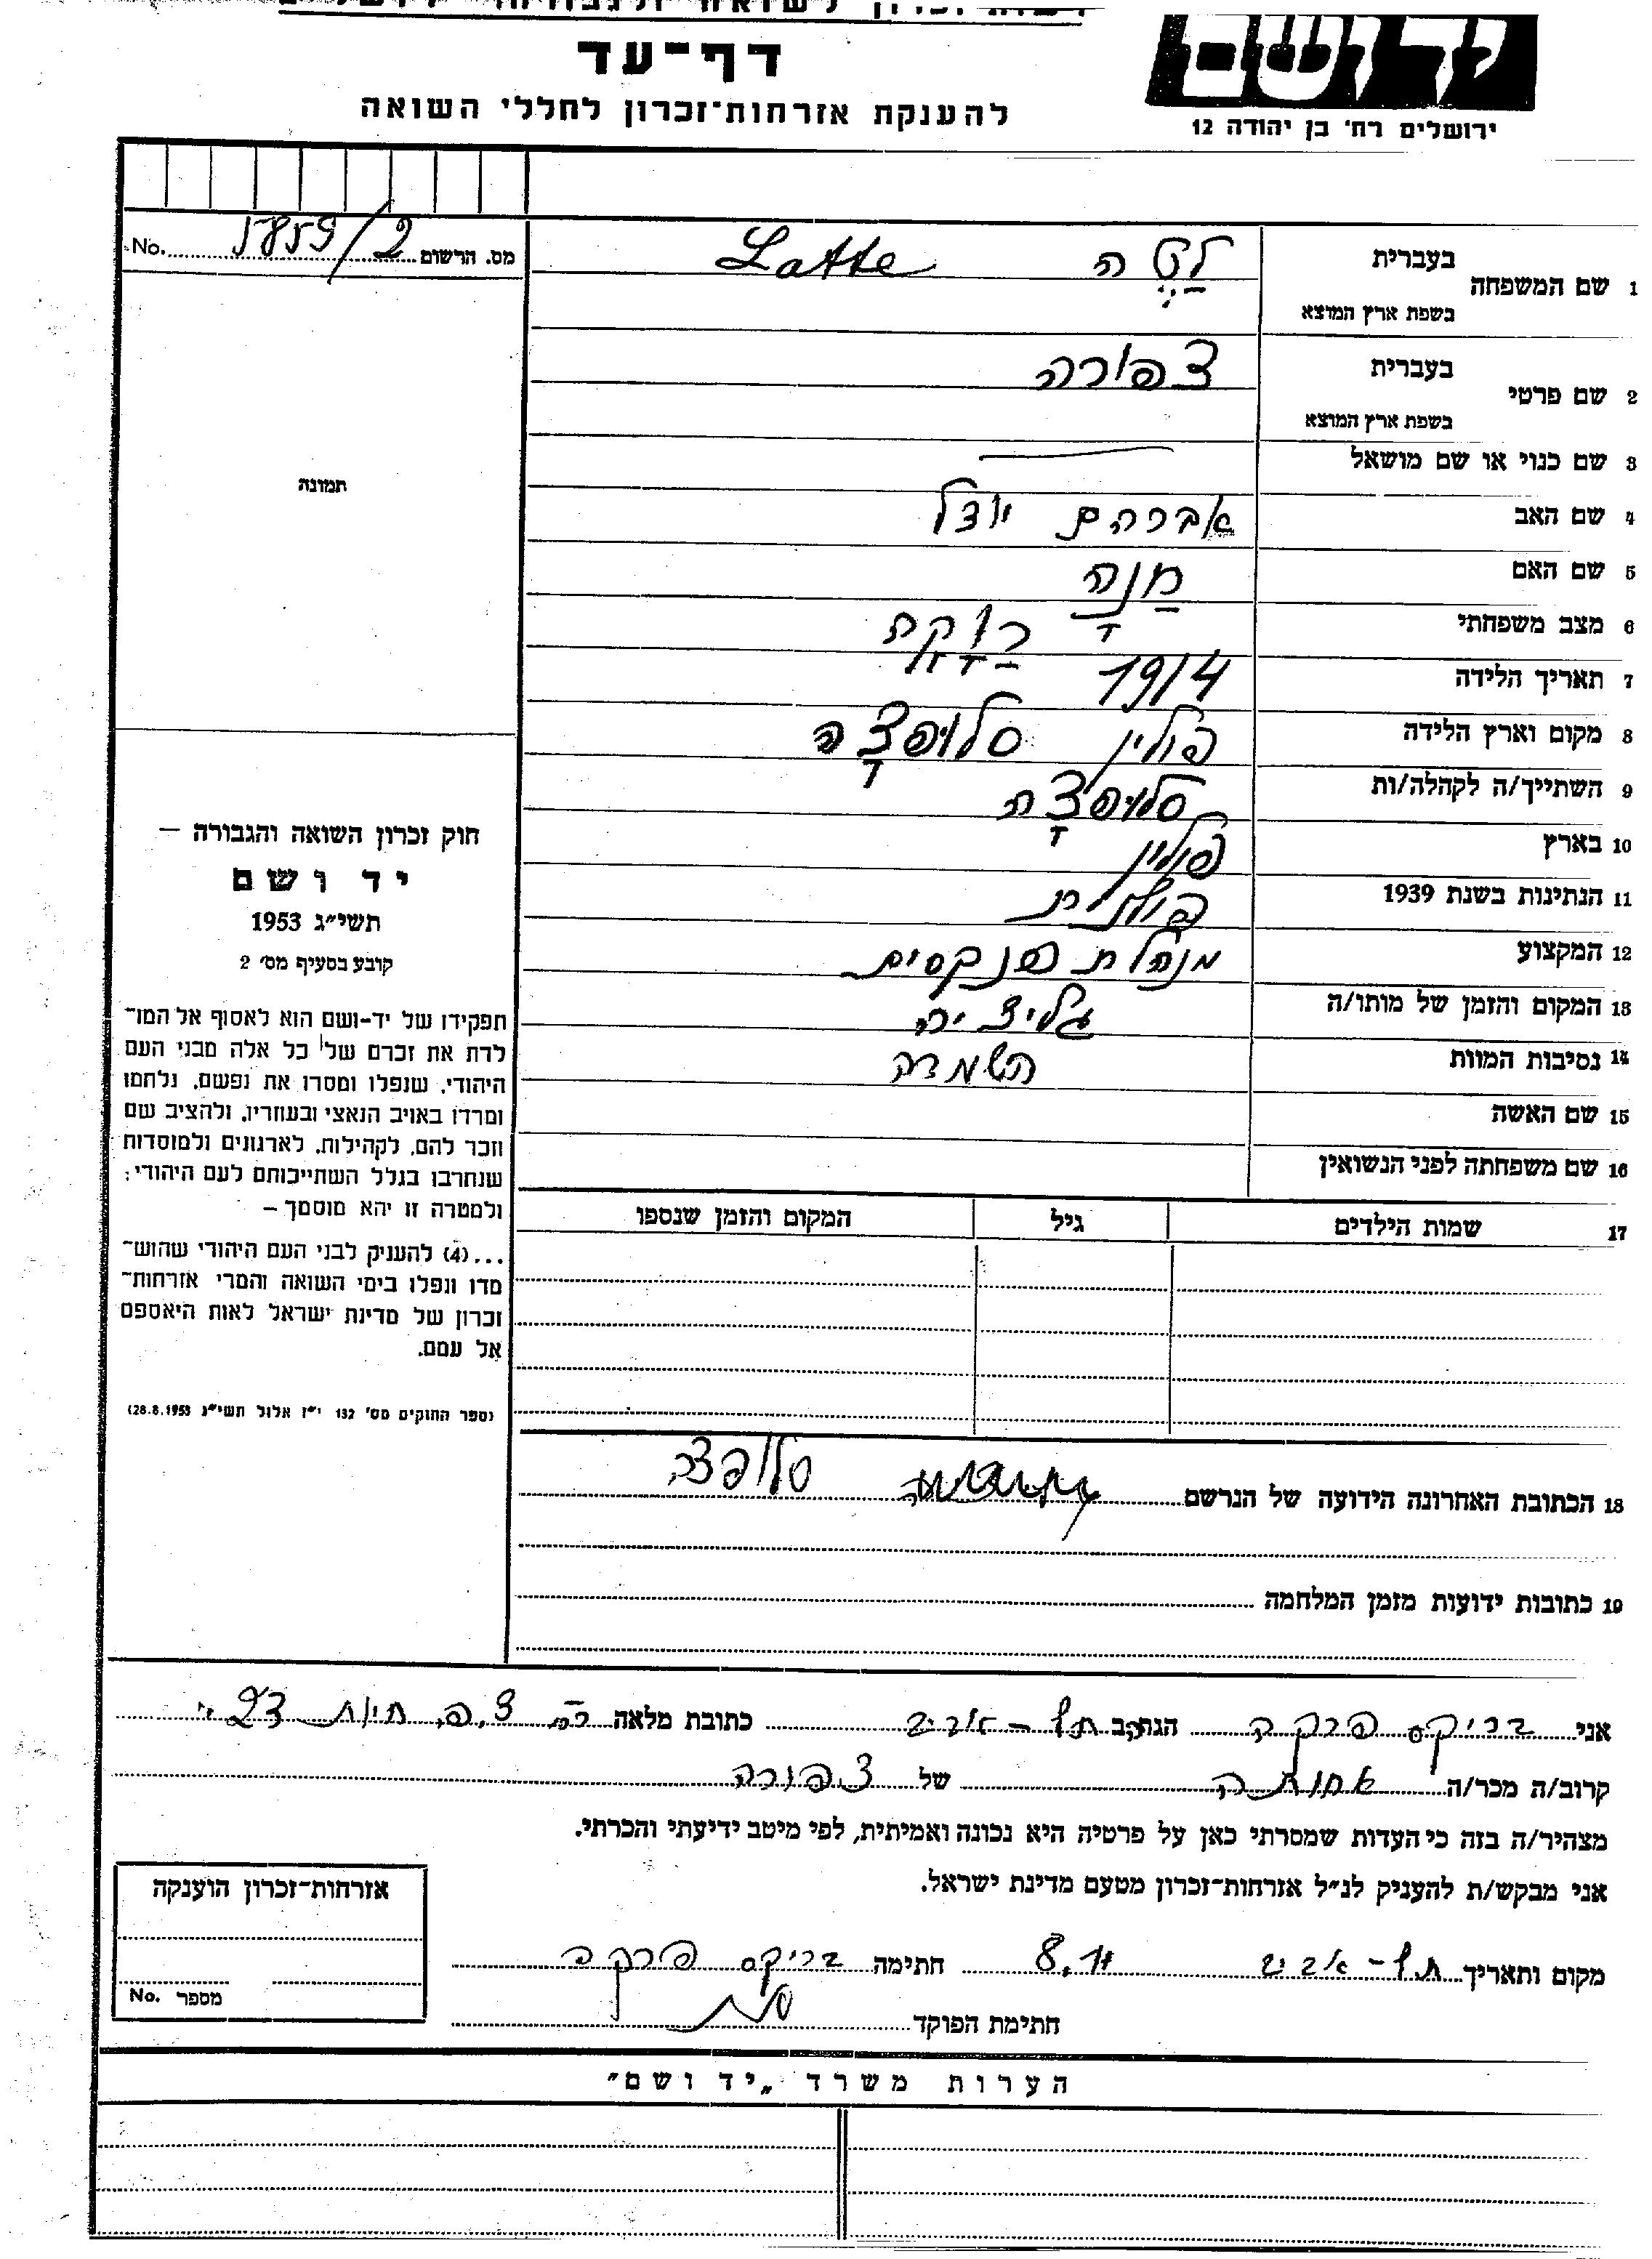 דף־עד
להענקת אזרחות־זכרון לחללי השואה
ידושם
ירושלים רח' בן יהודה 12
מס. הרשום 5859/2 No.
1 שם המשפחה
בעברית לטה Latte
בשפת ארץ המוצא
2 שם פרטי
בעברית צפורה
בשפת ארץ המוצא
3 שם כנוי או שם מושאל
4 שם האב אברהם יודל
5 שם האם מנה
6 מצב משפחתי רוקת
7 תאריך הלידה 1914
8 מקום וארץ הלידה פולין סלופצה
9 השתייך/ה לקהלה/ות סלופצה
10 בארץ פולין
11 הנתינות בשנת 1939 פולנית
12 המקצוע מנהלת פנקסים
13 המקום והזמן של מותו/ה גליציה
14 נסיבות המוות השמדה
15 שם האשה
16 שם משפחתה לפני הנשואין
17 שמות הילדים גיל המקום והזמן שנספו
תמונה
חוק זכרון השואה והגבורה —
יד ושם
תשי״ג 1953
קובע בסעיף מס' 2
תפקידו של יד-ושם הוא לאסוף אל המו־
לדת את זכרם של כל אלה מבני העם
היהודי, שנפלו ומסרו את נפשם, נלחמו
ומרדו באויב הנאצי ובעוזריו, ולהציב שם
וזכר להם, לקהילות, לארגונים ולמוסדות
שנחרבו בגלל השתייכותם לעם היהודי;
ולמטרה זו יהא מוסמך —
...(4) להעניק לבני העם היהודי שהוש־
מדו ונפלו בימי השואה והמרי אזרחות־
זכרון של מדינת ישראל לאות היאספם
אל עמם.
(ספר החוקים מס' 132 י״ז אלול תשי״ג 28.8.1953)
18 הכתובת האחרונה הידועה של הנרשם סלופצה
19 כתובות ידועות מזמן המלחמה
אני בריקס פרקה הגר/ב תל-אביב כתובת מלאה רח צ.פ. חיות 23
קרוב/ה מכר/ה אחותה של צפורה
מצהיר/ה בזה כי העדות שמסרתי כאן על פרטיה היא נכונה ואמיתית, לפי מיטב ידיעתי והכרתי.
אני מבקש/ת להעניק לנ״ל אזרחות־זכרון מטעם מדינת ישראל.
מקום ותאריך תל-אביב 8.11 חתימה בריקס פרקה
חתימת הפוקד
אזרחות־זכרון הוענקה
מספר No.
הערות משרד „יד ושם״